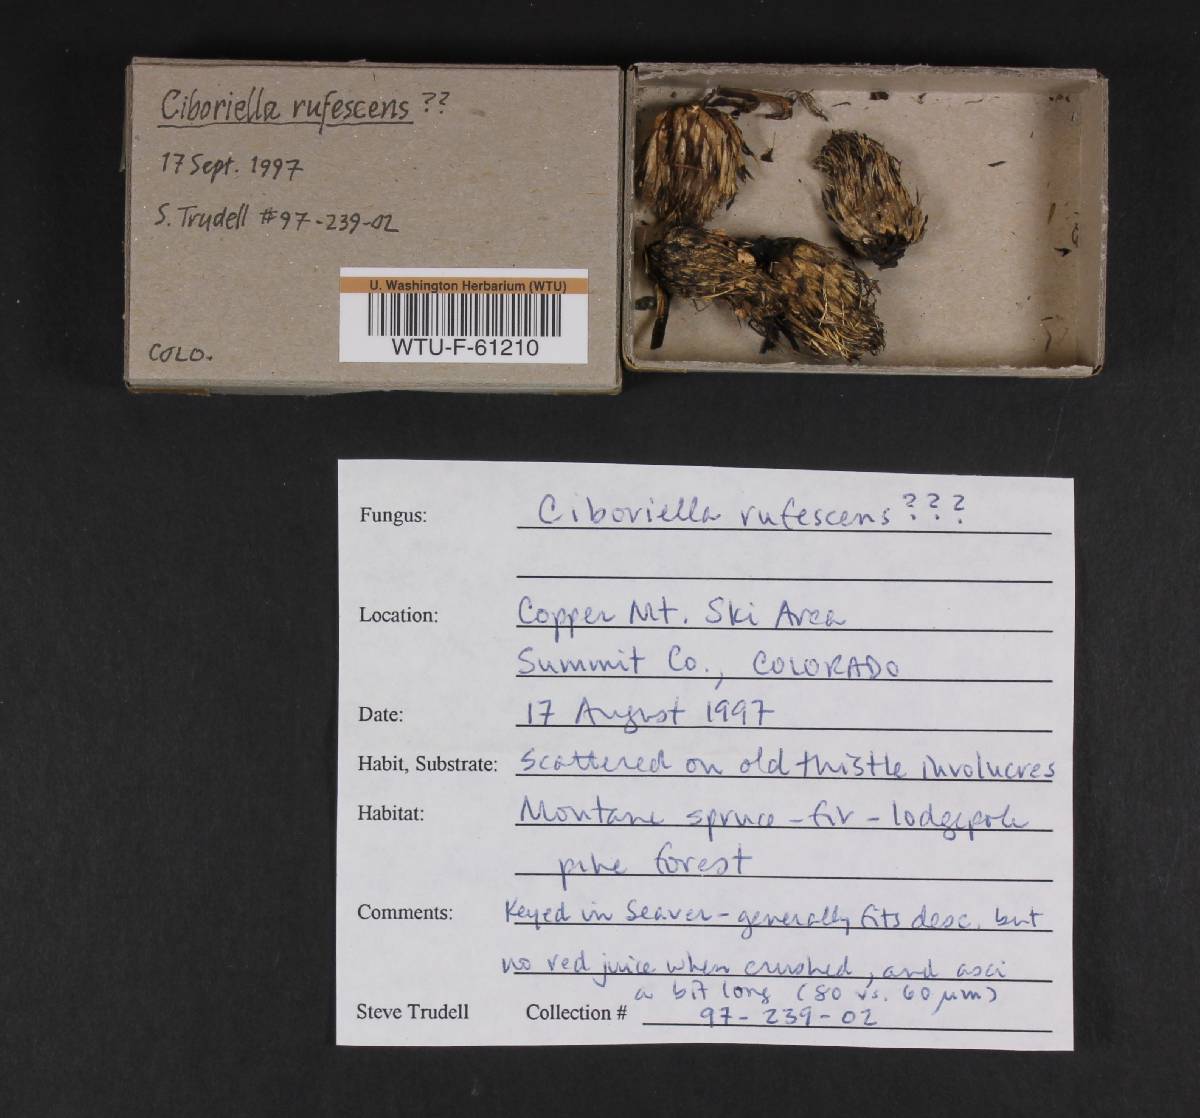 Ciboriella rufescens ??
17 Sept. 1997
S. Trudell #97-239-02
U. Washington Herbarium (WTU)
WTU-F-61210
COLO.
Fungus: Ciboriella rufescens ???
Location: Copper Mt. Ski Area
Summit Co., COLORADO
Date: 17 August 1997
Habit, Substrate: Scattered on old thistle involucres
Habitat: Montane spruce-fir-lodgepole
pine forest
Comments: Keyed in Seaver - generally fits desc. but
no red juice when crushed, and asci
a bit long (80 vs. 60 µm)
Steve Trudell Collection # 97-239-02